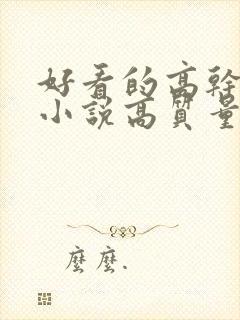 好看的高幹
小說高質量
麼麼.